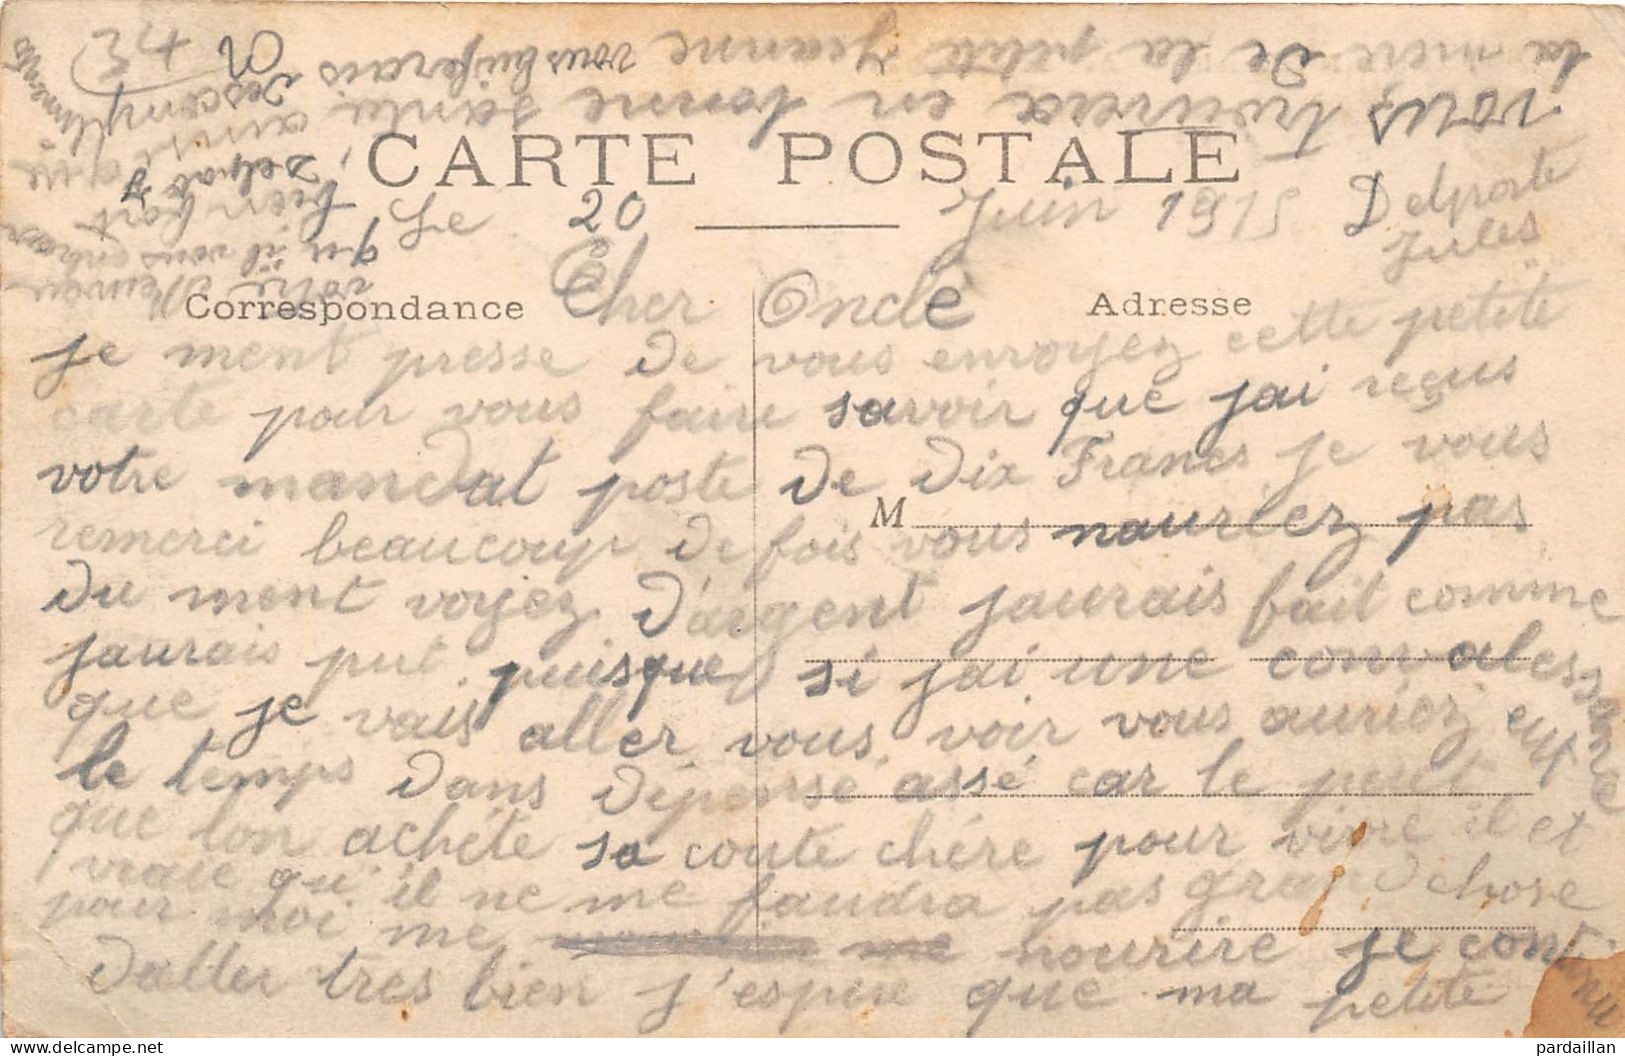 CARTE POSTALE
Le 20 Juin 1915 Delporte
Jules
Correspondance
Adresse
M
Cher Oncle
je ment presse de vous envoyez cette petite
carte pour vous faire savoir que jai reçus
votre mandat poste de dix Francs je vous
remerci beaucoup de fois vous nauriez pas
du ment voyez d'argent jaurais fait comme
jaurais put puisque si jai une convalessance
que je vais aller vous voir vous auriez eux
le temps dans dépensé assé car le peut
que lon achéte sa coute chére pour vivre il et
vraie qu'il ne me faudra pas grand chose
pour moi me nourire je continu
daller tres bien j'espére que ma petite
carte
vous trouvera en bonne santé, ainsi que
la mere de la petite Jeanne vous lui ferais
des compliments
votre neveu
qu'il vous
bien fort
Delporte J
24